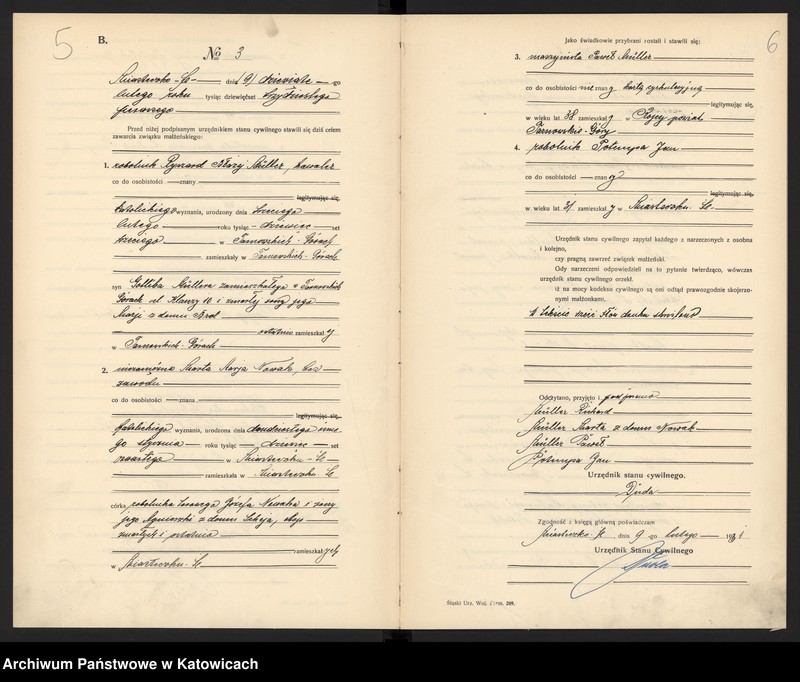 5
B.
№ 3
Miasteczko-Śl. dnia 9/ dziewiąte -go
lutego roku tysiąc dziewięćset trzydziestego
pierwszego
Przed niżej podpisanym urzędnikiem stanu cywilnego stawili się dziś celem
zawarcia związku małżeńskiego:
1. robotnik Ryszard Müller, kawaler
co do osobistości — znany
legitymując się,
katolickiego wyznania, urodzony dnia
lutego roku tysiąc dziewięć set
trzeciego w Tarnowskich-Górach
zamieszkały w Tarnowskich-Górach
syn Gotliba Müllera zamieszkałego w Tarnowskich
Górach ul. i zmarłej żony jego
Marji z domu
ostatnio zamieszkałej
w Tarnowskich-Górach
2. niezamężna Marta Marja Nowak, bez
zawodu
co do osobistości — znana
legitymując się,
katolickiego wyznania, urodzona dnia dwudziestego
go stycznia roku tysiąc dziewięć set
czwartego w Miasteczku-Śl.
zamieszkała w Miasteczku Śl.
córka robotnika Józefa Nowaka i żony
jego Agnieszki z domu oboje
zmarłych i ostatnio
zamieszkałych
w Miasteczku-Śl.
6
Jako świadkowie przybrani zostali i stawili się:
3. maszynista Paweł Müller
co do osobistości nie znany kartą cyrkulacyjną
legitymując się,
w wieku lat 38, zamieszkały w powiat
Tarnowskie-Góry
4. robotnik Potempa Jan
co do osobistości — znany
legitymując się,
w wieku lat 31 zamieszkały w Miasteczku Śl.
Urzędnik stanu cywilnego zapytał każdego z narzeczonych z osobna
i kolejno,
czy pragną zawrzeć związek małżeński.
Gdy narzeczeni odpowiedzieli na to pytanie twierdząco, wówczas
urzędnik stanu cywilnego orzekł,
iż na mocy kodeksu cywilnego są oni odtąd prawozgodnie skojarzo-
nymi małżonkami.
W tekście słów druku skreślono
Odczytano, przyjęto i podpisano
Müller Richard
Müller Marta z domu Nowak
Müller Paweł
Potempa Jan
Urzędnik stanu cywilnego.
Duda
Zgodność z księgą główną poświadczam
Miasteczko-Śl. dnia 9 -go lutego 1931
Urzędnik Stanu Cywilnego
Duda
Śląski Urz. Woj. Form. 209.
Archiwum Państwowe w Katowicach